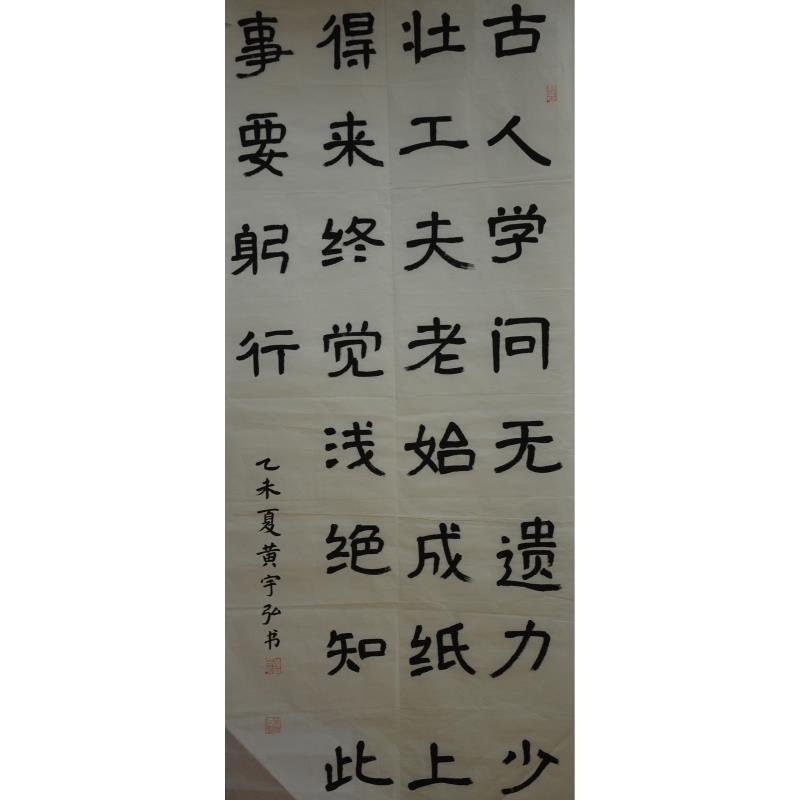 古人学问无遗力少
壮工夫老始成纸上
得来终觉浅绝知此
事要躬行
乙未夏黄宇弘书